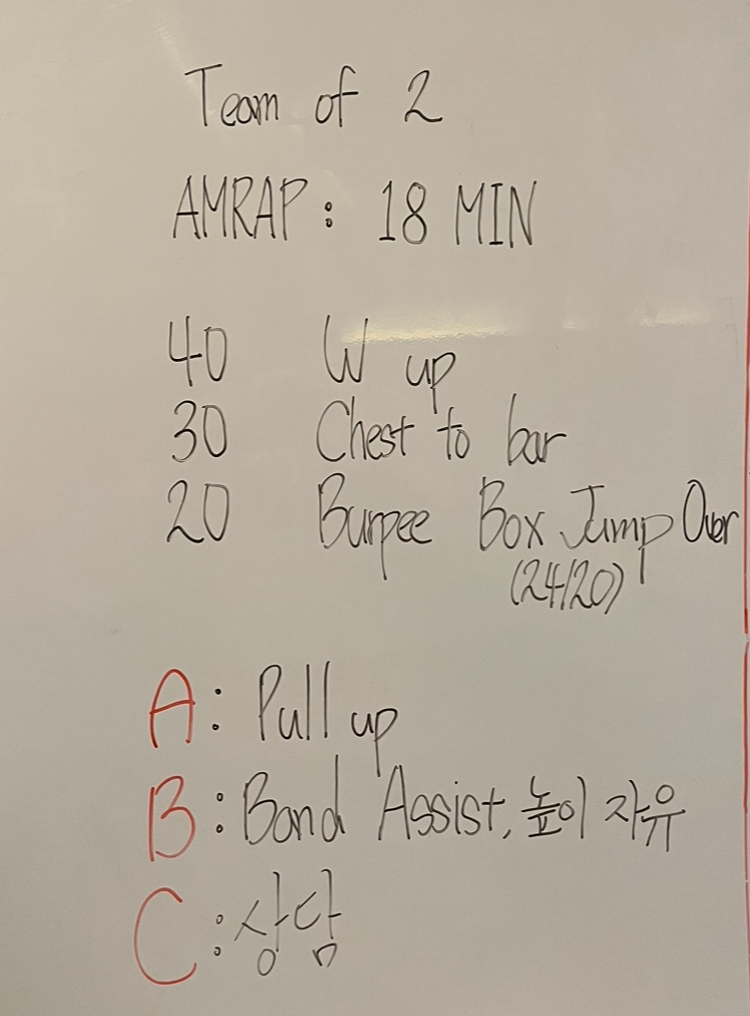 Team of 2
AMRAP: 18 MIN
40 W up
30 Chest to bar
20 Burpee Box Jump Over
(24/20)
A: Pull up
B: Band Assist, 높이 자유
C: 상담